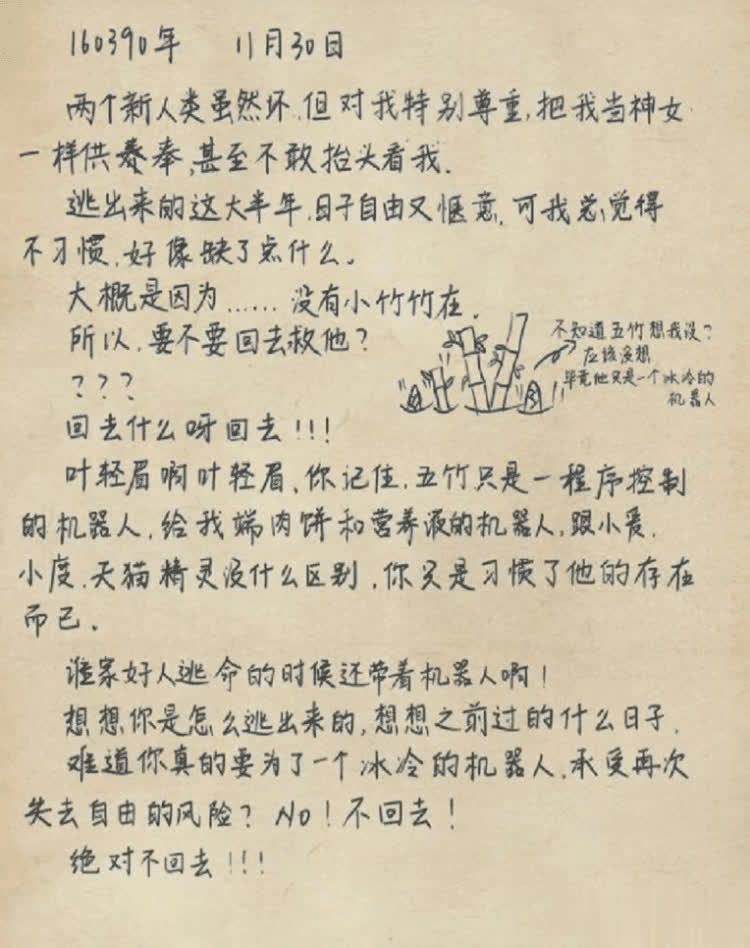 160390年 11月30日
两个新人类虽然坏,但对我特别尊重,把我当神女
一样供奉,甚至不敢抬头看我.
逃出来的这大半年,日子自由又惬意,可我总觉得
不习惯,好像缺了点什么。
大概是因为……没有小竹竹在.
所以,要不要回去救他?
???
不知道五竹想我没?
应该没想
毕竟他只是一个冰冷的
机器人
回去什么呀回去!!!
叶轻眉啊叶轻眉、你记住,五竹只是一程序控制
的机器人,给我端肉饼和营养液的机器人,跟小爱,
小度,天猫精灵没什么区别,你只是习惯了他的存在
而已。
谁家好人逃命的时候还带着机器人啊!
想想你是怎么逃出来的,想想之前过的什么日子,
难道你真的要为了一个冰冷的机器人,承受再次
失去自由的风险? No!不回去!
绝对不回去!!!